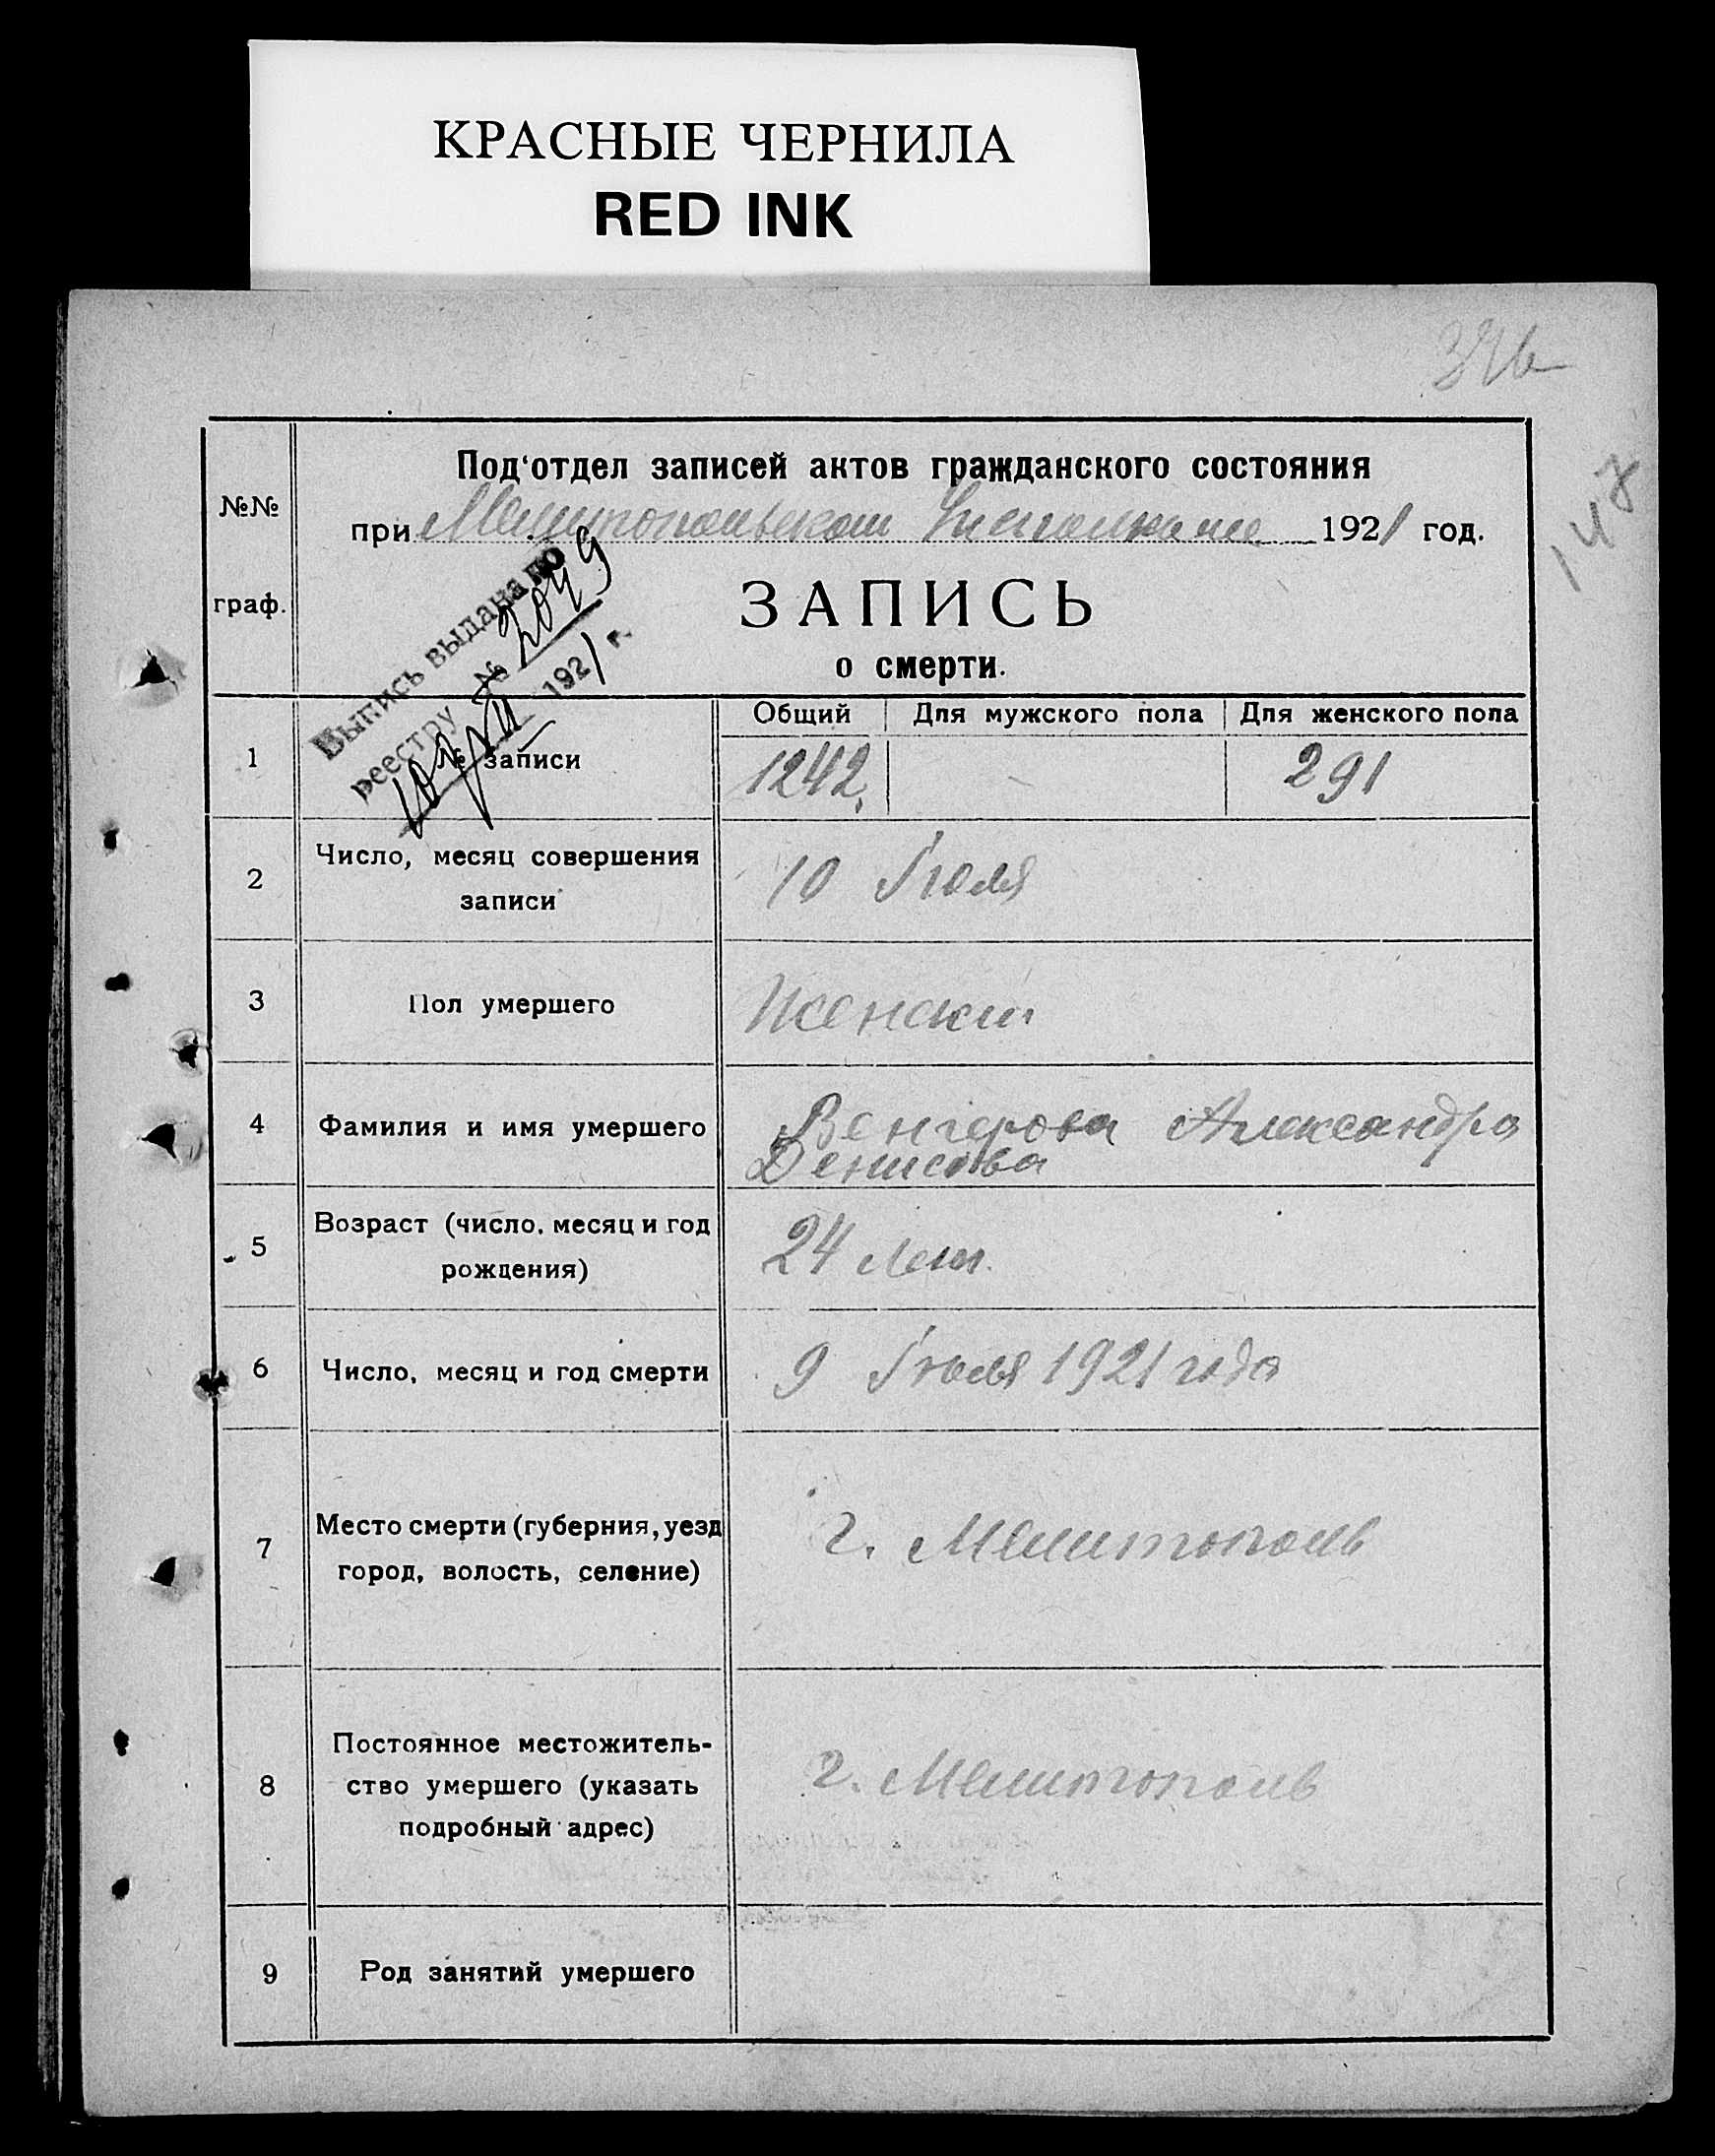 КРАСНЫЕ ЧЕРНИЛА
RED INK
147
№№
граф.
Под'отдел записей актов гражданского состояния
при Мелитопольском 1921 год.
ЗАПИСЬ
о смерти.
Выпись выдана по
реестру № 2049
10/VII 1921 г.
Общий Для мужского пола Для женского пола
1 № записи 1242. 291
2 Число, месяц совершения
записи
10 Июля
3 Пол умершего Женский
4 Фамилия и имя умершего Венгерова Александра
Денисова
5 Возраст (число, месяц и год
рождения)
24 лет.
6 Число, месяц и год смерти 9 Июля 1921 года
7 Место смерти (губерния, уезд
город, волость, селение)
г. Мелитополь
8 Постоянное местожитель-
ство умершего (указать
подробный адрес)
г. Мелитополь
9 Род занятий умершего